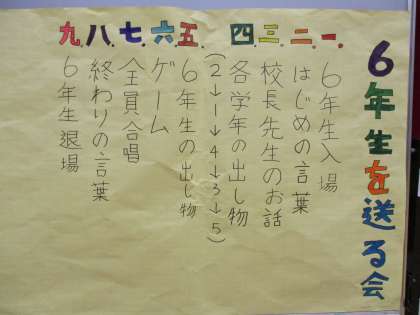 6年生を送る会
一.6年生入場
二.はじめの言葉
三.校長先生のお話
四.各学年の出し物
(2→1→4→3→5)
五.6年生の出し物
六.ゲーム
七.全員合唱
八.終わりの言葉
九.6年生退場